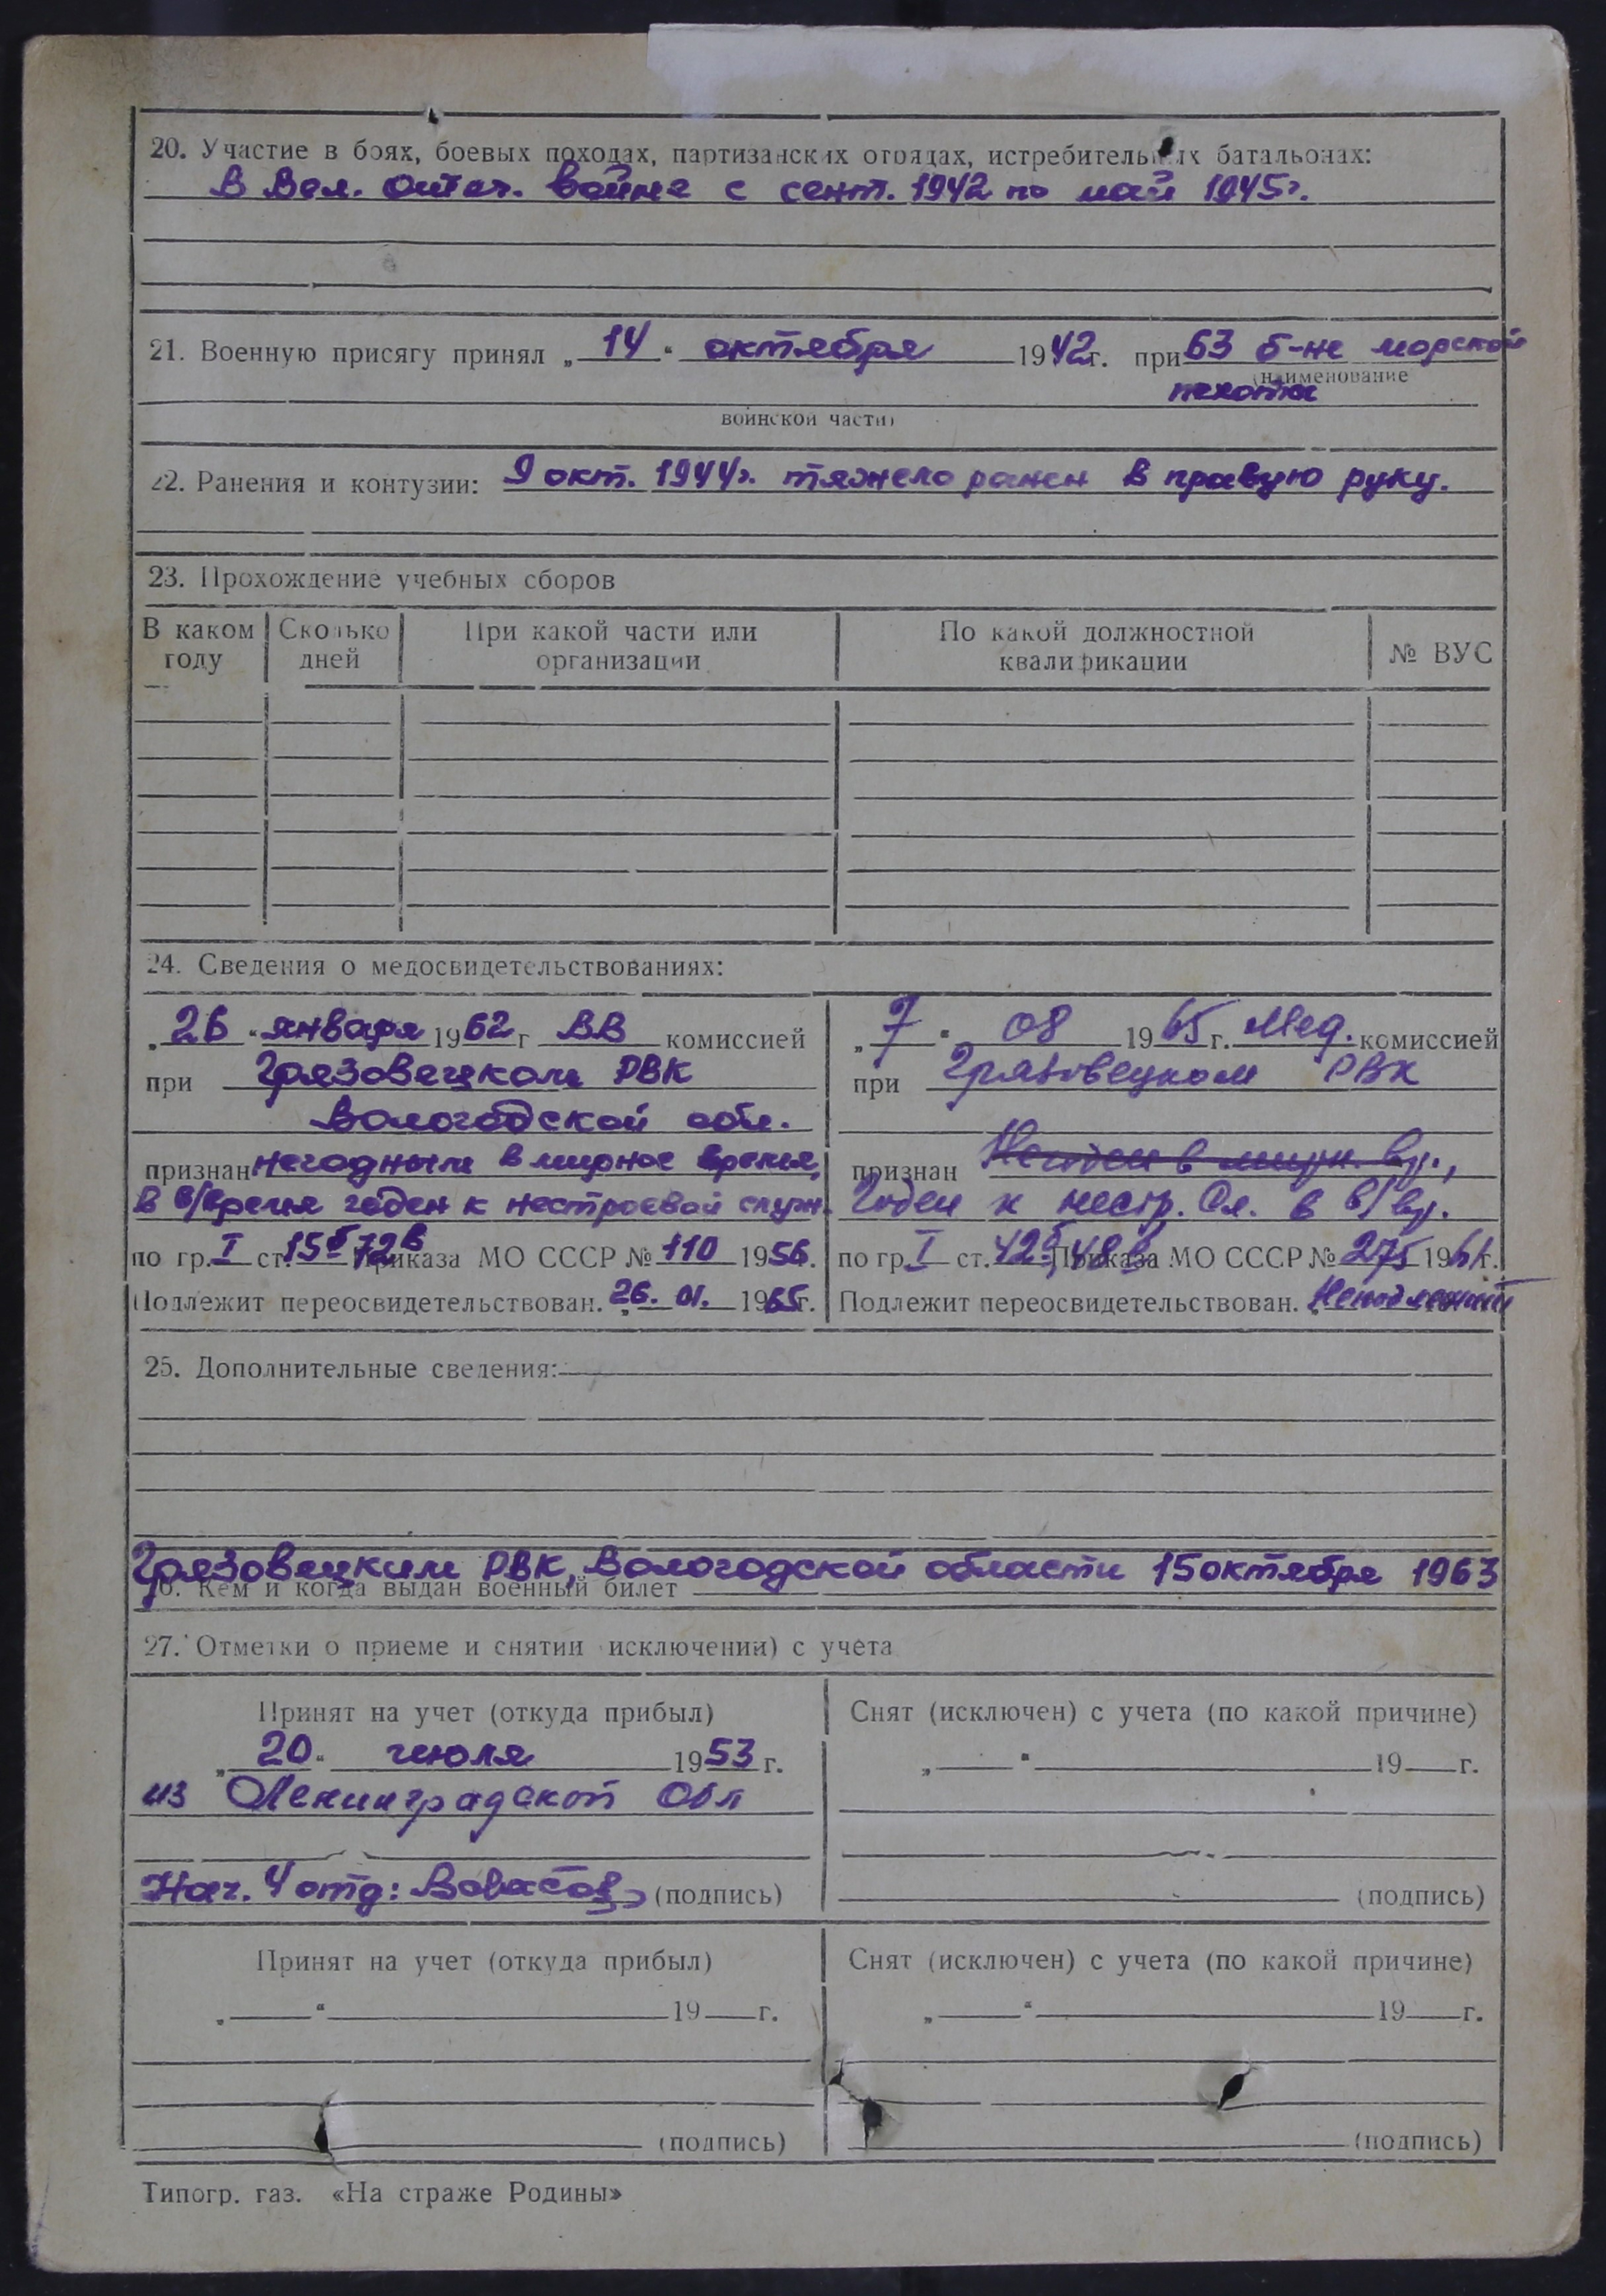 20. Участие в боях, боевых походах, партизанских отрядах, истребительных батальонах:
В Вел. Отеч. войне с сент. 1942 по май 1945г.
21. Военную присягу принял „ 14 “ октября 1942г. при 63 б-не морской
(наименование
пехоты
воинской части)
22. Ранения и контузии: 9 окт. 1944г. тяжело ранен в правую руку.
23. Прохождение учебных сборов
В каком году Сколько дней При какой части или организации По какой должностной квалификации № ВУС
24. Сведения о медосвидетельствованиях:
„ 26 “ января 1962 г ВВ комиссией
при Грязовецком РВК
Вологодской обл.
признан негодным в мирное время,
в в/время годен к нестроевой служ.
по гр. I ст. 15б 72в Приказа МО СССР № 110 1956г.
Подлежит переосвидетельствован. „26. 01. 1965г.
„ 7 “ 08 1965г. Мед. комиссией
при Грязовецком РВК
признан Негоден в мирн. вр.,
Годен к нестр. сл. в в/вр.
по гр. I ст. 42б, 48 Приказа МО СССР № 275 1961г.
Подлежит переосвидетельствован. Неподлежит
25. Дополнительные сведения:
Грязовецким РВК, Вологодской области 15 октября 1963
26. Кем и когда выдан военный билет
27. Отметки о приеме и снятии (исключений) с учета
Принят на учет (откуда прибыл)
„ 20 “ июля 1953 г.
из Ленинградской Обл
Нач. 4 отд: (подпись)
Снят (исключен) с учета (по какой причине)
„ “ 19 г.
(подпись)
Принят на учет (откуда прибыл)
„ “ 19 г.
(подпись)
Снят (исключен) с учета (по какой причине)
„ “ 19 г.
(подпись)
Типогр. газ. «На страже Родины»